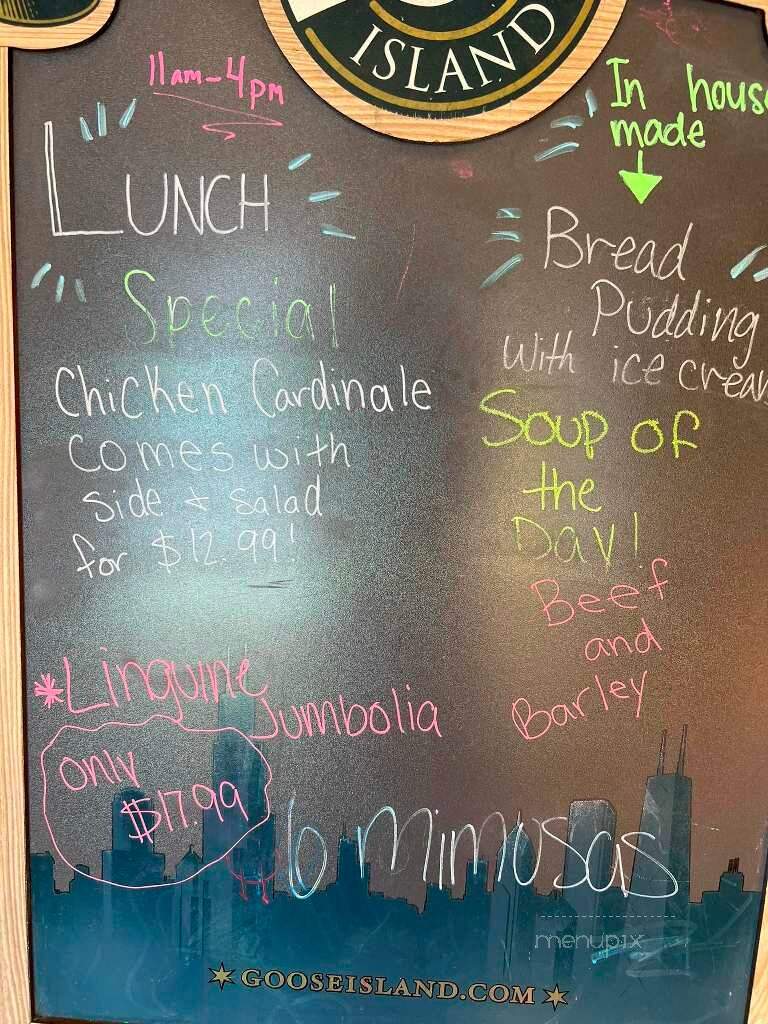 ISLAND
11am-4pm
LUNCH
Special
Chicken Cardinale
Comes with
side & salad
for $12.99!
*Linguine
Jumbolia
only
$17.99
In hous
made
Bread
Pudding
With ice cream
Soup of
the
Day!
Beef
and
Barley
6 mimosas
menupix
GOOSEISLAND.COM